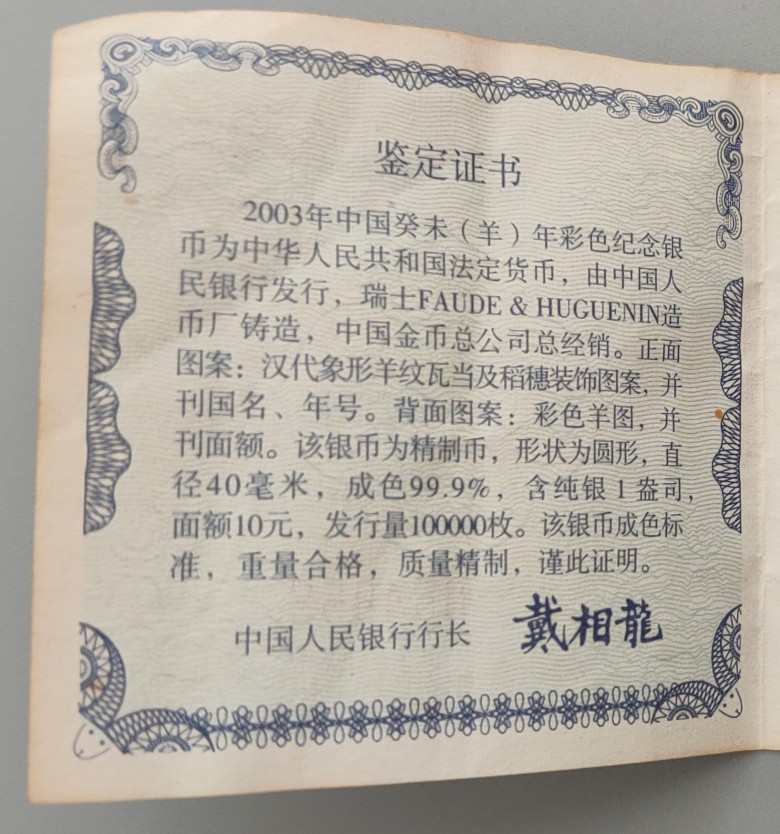 鉴定证书
2003年中国癸未（羊）年彩色纪念银
币为中华人民共和国法定货币，由中国人
民银行发行，瑞士FAUDE & HUGUENIN造
币厂铸造，中国金币总公司总经销。正面
图案：汉代象形羊纹瓦当及稻穗装饰图案，并
刊国名、年号。背面图案：彩色羊图，并
刊面额。该银币为精制币，形状为圆形，直
径40毫米，成色99.9%，含纯银1盎司，
面额10元，发行量100000枚。该银币成色标
准，重量合格，质量精制，谨此证明。
中国人民银行行长 戴相龍